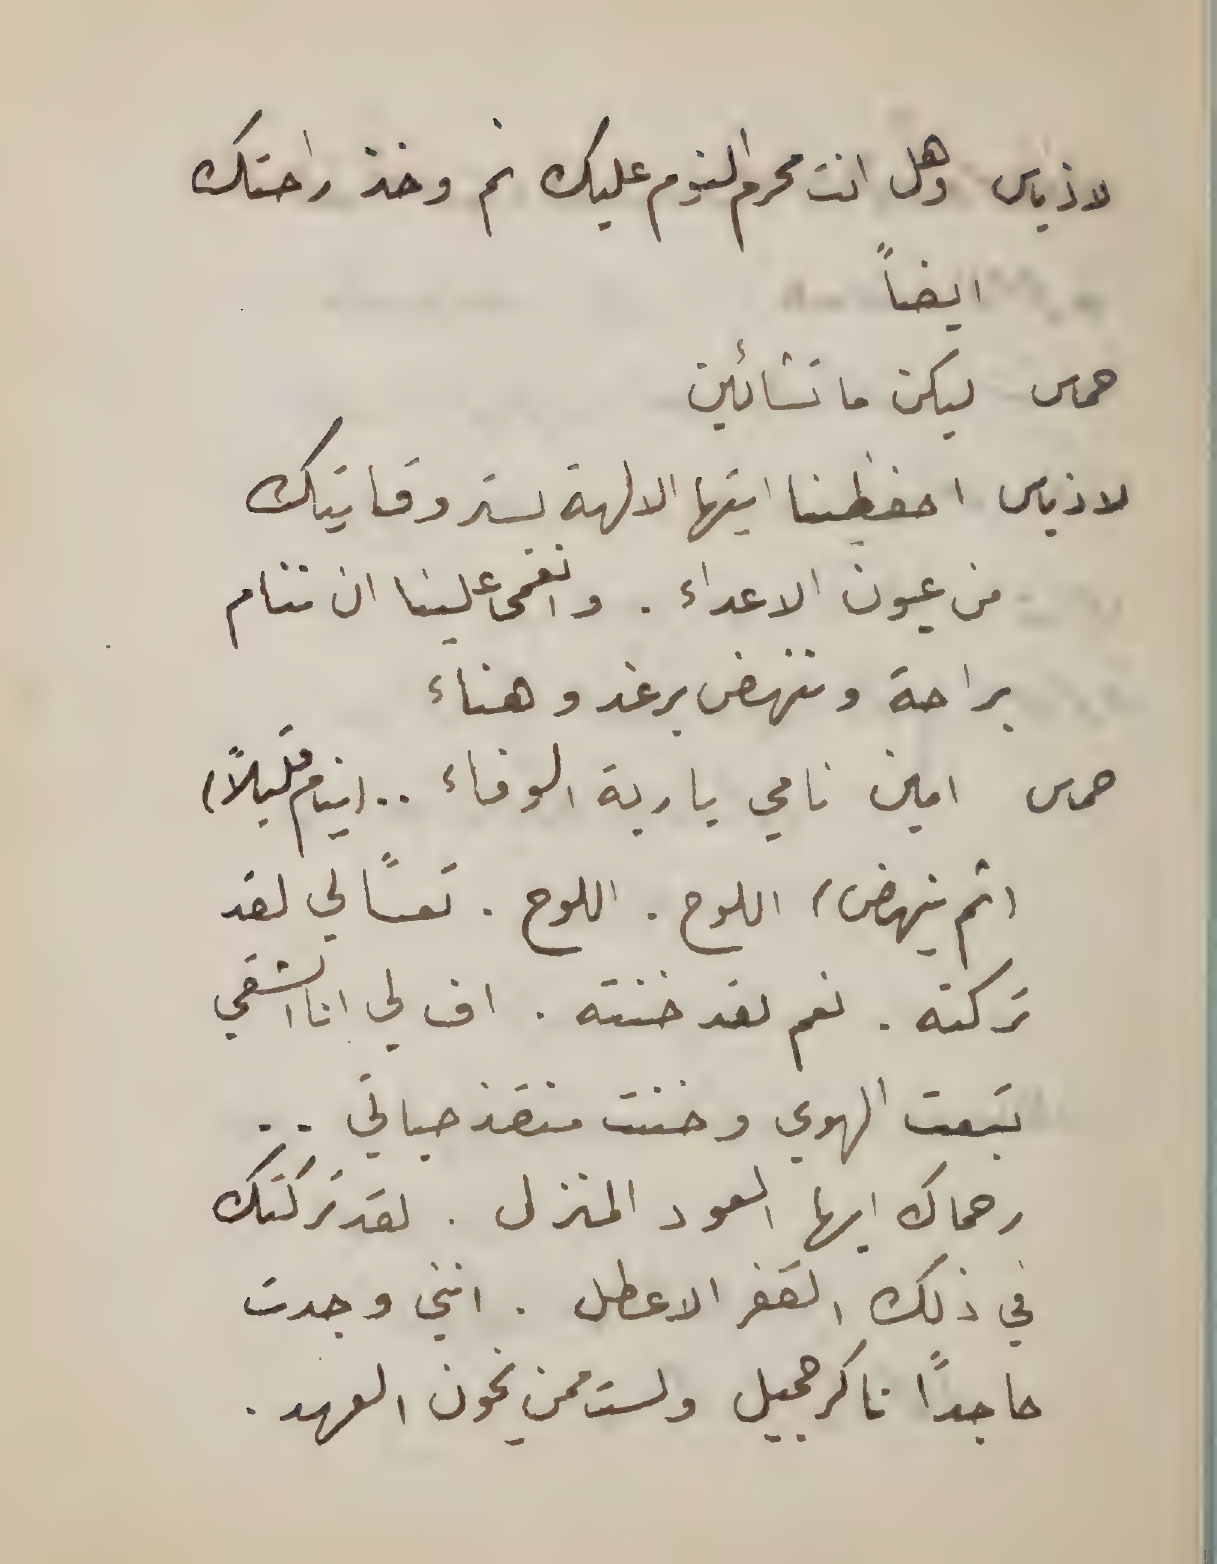 لاذياس وهل انت محرم النوم عليك نم وخذ راحتك
ايضاً
حماس ليكن ما تشائين
لاذياس احفظينا ايتها الالهة بستر وقايتك
من عيون الاعداء . وانعمى علينا ان ننام
براحة وننهض برغد وهناء
حماس امين نامي يا ربة الوفاء .. (ينام قليلاً)
(ثم ينهض) اللوح . اللوح . تعساً لي لقد
تركته . نعم لقد خنته . اف لي انا الشقي
تبعت الهوى وخنت منقذ حياتي ..
رحماك ايها العود المنزل . لقد تركتك
في ذلك القفر الاعطل . انني وجدت
جاحدًا ناكر جميل ولست ممن يخون العهد .